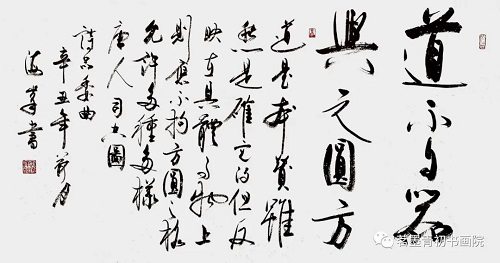 道不自器
與之圓方
道是本質雖
然是確定的但反
映在具體事物上
則應不拘方圓之
允許多種多樣
唐人司空圖
詩品委曲
辛丑年荷月
海峰書
墨青初书画院